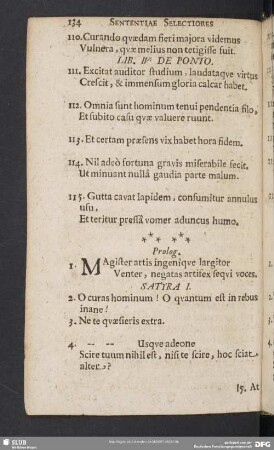 134 SENTENTIAE SELECTIORES
110. Curando qvædam fieri majora videmus
Vulnera, qvæ melius non tetigisse fuit.
LIB. IV. DE PONTO.
111. Excitat auditor studium, laudataqve virtus
Crescit, & immensum gloria calcar habet.
112. Omnia sunt hominum tenui pendentia filo,
Et subito casu qvæ valuere ruunt.
113. Et certam præsens vix habet hora fidem.
114. Nil adeò fortuna gravis miserabile fecit,
Ut minuant nullâ gaudia parte malum.
115. Gutta cavat lapidem, consumitur annulus
usu,
Et teritur pressâ vomer aduncus humo.
Prolog.
1. MAgister artis ingeniqve largitor
Venter, negatas artifex seqvi voces.
SATYRA I.
2. O curas hominum! O qvantum est in rebus
inane!
3. Ne te qvæsieris extra.
4. -- -- Usqve adeone
Scire tuum nihil est, nisi te scire, hoc sciat
alter?
15. At
SLUB